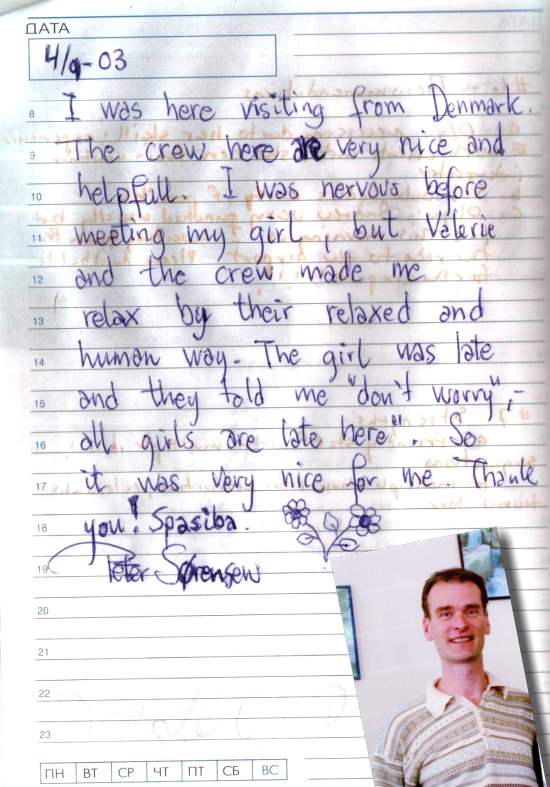 ДАТА
4/9-03
8 I was here visiting from Denmark.
9 The crew here are very nice and
10 helpfull. I was nervous before
11 meeting my girl, but Valerie
12 and the crew made me
13 relax by their relaxed and
14 human way. The girl was late
15 and they told me "don't worry",-
16 all girls are late here". So
17 it was very nice for me. Thank
18 you! Spasiba.
19 Peter Sørensen
20
21
22
23
ПН ВТ СР ЧТ ПТ СБ ВС